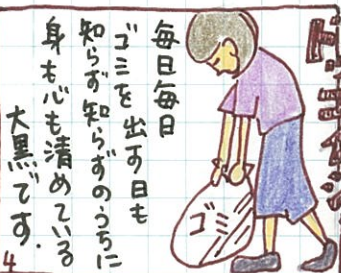 毎日毎日
ゴミを出す日も
知らず知らずのうちに
身も心も清めている
大黒です.
ゴミ
4